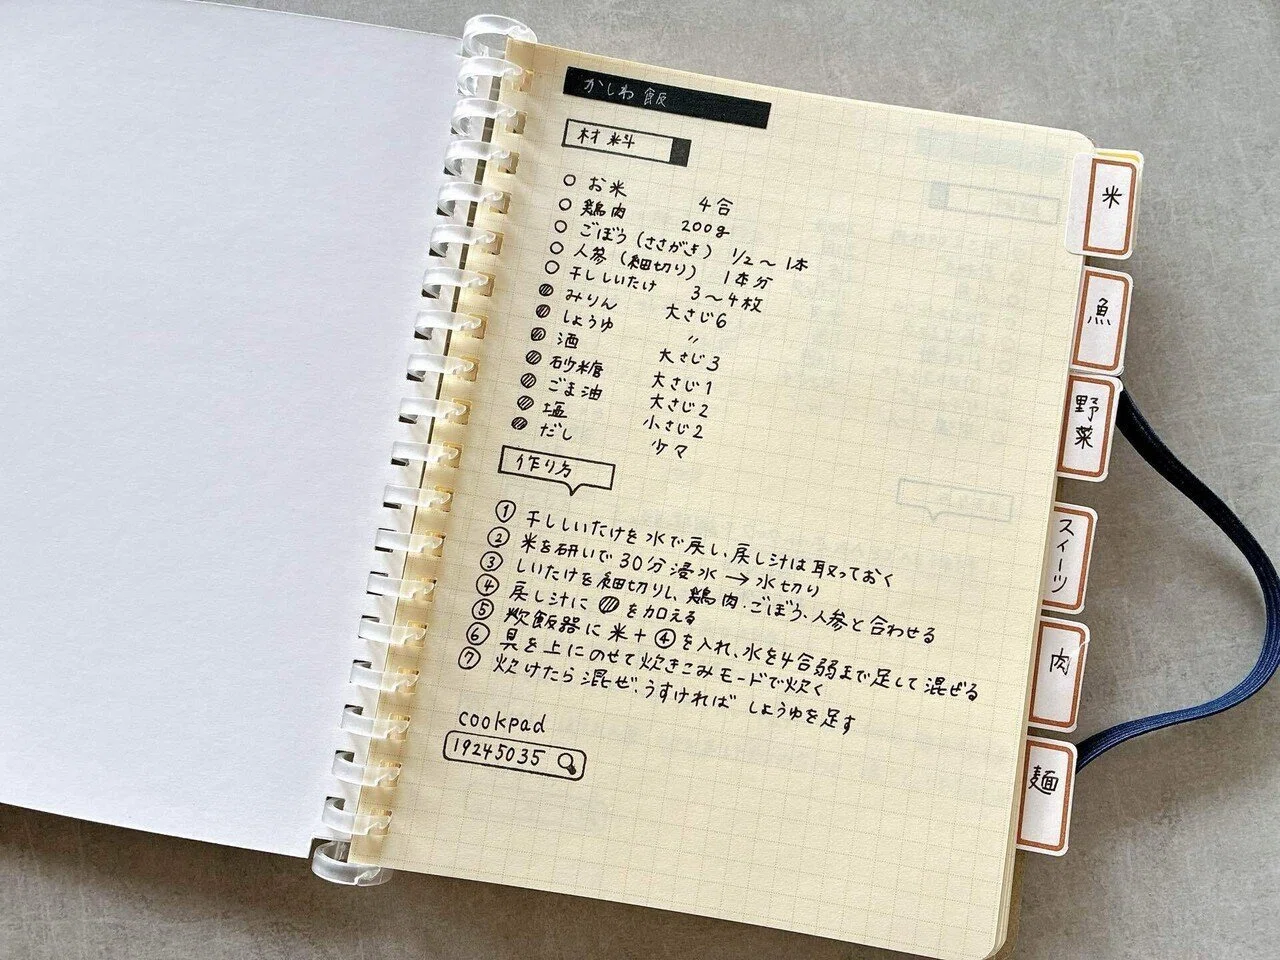 かしわ飯
材料
○ お米 4合
○ 鶏肉 200g
○ ごぼう(ささがき) 1/2〜1本
○ 人参(細切り) 1本分
○ 干ししいたけ 3〜4枚
● みりん 大さじ6
● しょうゆ 〃
● 酒 大さじ3
● 砂糖 大さじ1
● ごま油 大さじ2
● 塩 小さじ2
● だし 少々
作り方
① 干ししいたけを水で戻し、戻し汁は取っておく
② 米を研いで30分浸水→水切り
③ しいたけを細切りし、鶏肉・ごぼう、人参と合わせる
④ 戻し汁に●を加える
⑤ 炊飯器に米+④を入れ、水を4合弱まで足して混ぜる
⑥ 具を上にのせて炊きこみモードで炊く
⑦ 炊けたら混ぜ、うすければしょうゆを足す
cookpad
19245035
米
魚
野菜
スイーツ
肉
麺